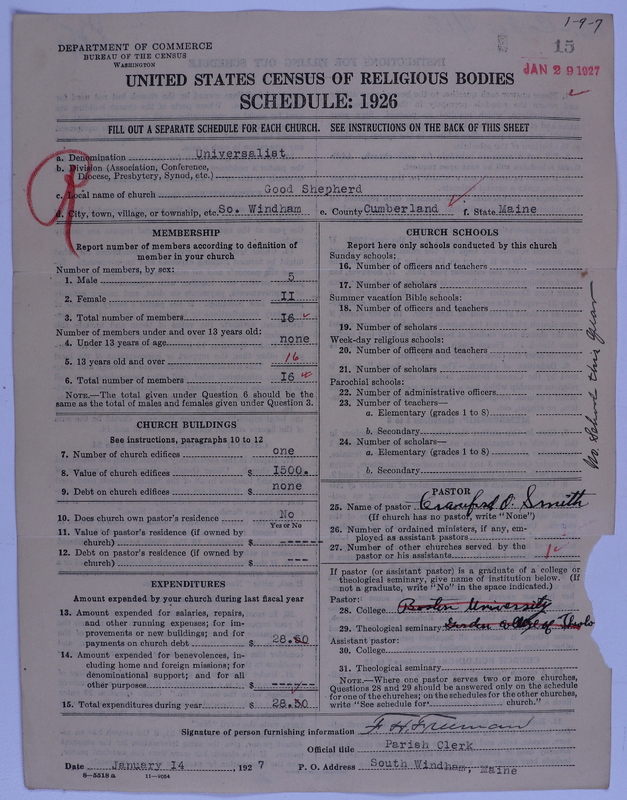 1-9-7
DEPARTMENT OF COMMERCE
BUREAU OF THE CENSUS
WASHINGTON
15
JAN 29 1927
UNITED STATES CENSUS OF RELIGIOUS BODIES
SCHEDULE: 1926
FILL OUT A SEPARATE SCHEDULE FOR EACH CHURCH. SEE INSTRUCTIONS ON THE BACK OF THIS SHEET
a. Denomination Universalist
b. Division (Association, Conference,
Diocese, Presbytery, Synod, etc.)
c. Local name of church Good Shepherd
d. City, town, village, or township, etc. So. Windham e. County Cumberland f. State Maine
MEMBERSHIP
Report number of members according to definition of
member in your church
Number of members, by sex:
1. Male 5
2. Female II
3. Total number of members I6
Number of members under and over 13 years old:
4. Under 13 years of age none
5. 13 years old and over 16
6. Total number of members I6
NOTE.—The total given under Question 6 should be the
same as the total of males and females given under Question 3.
CHURCH BUILDINGS
See instructions, paragraphs 10 to 12
7. Number of church edifices one
8. Value of church edifices $ I500.
9. Debt on church edifices $ none
10. Does church own pastor's residence No
Yes or No
11. Value of pastor's residence (if owned by
church) $ ------
12. Debt on pastor's residence (if owned by
church) $ ---
EXPENDITURES
Amount expended by your church during last fiscal year
13. Amount expended for salaries, repairs,
and other running expenses; for im-
provements or new buildings; and for
payments on church debt $ 28.50
14. Amount expended for benevolences, in-
cluding home and foreign missions; for
denominational support; and for all
other purposes $ ------
15. Total expenditures during year $ 28.50
CHURCH SCHOOLS
Report here only schools conducted by this church
Sunday schools:
16. Number of officers and teachers
17. Number of scholars
Summer vacation Bible schools:
18. Number of officers and teachers
19. Number of scholars
Week-day religious schools:
20. Number of officers and teachers
21. Number of scholars
Parochial schools:
22. Number of administrative officers
23. Number of teachers—
a. Elementary (grades 1 to 8)
b. Secondary
24. Number of scholars—
a. Elementary (grades 1 to 8)
b. Secondary
No School this year
PASTOR
25. Name of pastor Crawford O. Smith
(If church has no pastor, write "None")
26. Number of ordained ministers, if any, em-
ployed as assistant pastors
27. Number of other churches served by the
pastor or his assistants 1
If pastor (or assistant pastor) is a graduate of a college or
theological seminary, give name of institution below. (If
not a graduate, write "No" in the space indicated.)
Pastor:
28. College Boston University
29. Theological seminary
Assistant pastor:
30. College
31. Theological seminary
NOTE.—Where one pastor serves two or more churches,
Questions 28 and 29 should be answered only on the schedule
for one of the churches; on the schedules for the other churches,
write "See schedule for church."
Signature of person furnishing information F. H. Freeman
Official title Parish Clerk
Date January I4, 1927 P. O. Address South Windham, Maine
8-5518 a 11-9054